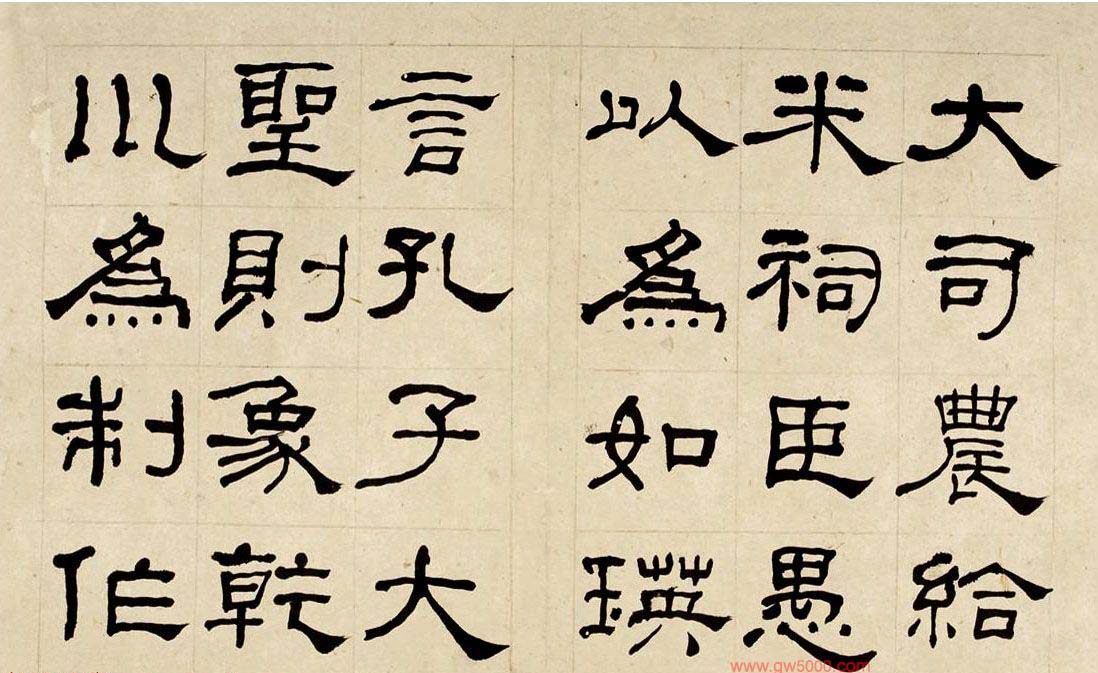 大司農給
米祠臣愚
以為如瑛
言孔子大
聖則象乾
川為制作
www.gw5000.com